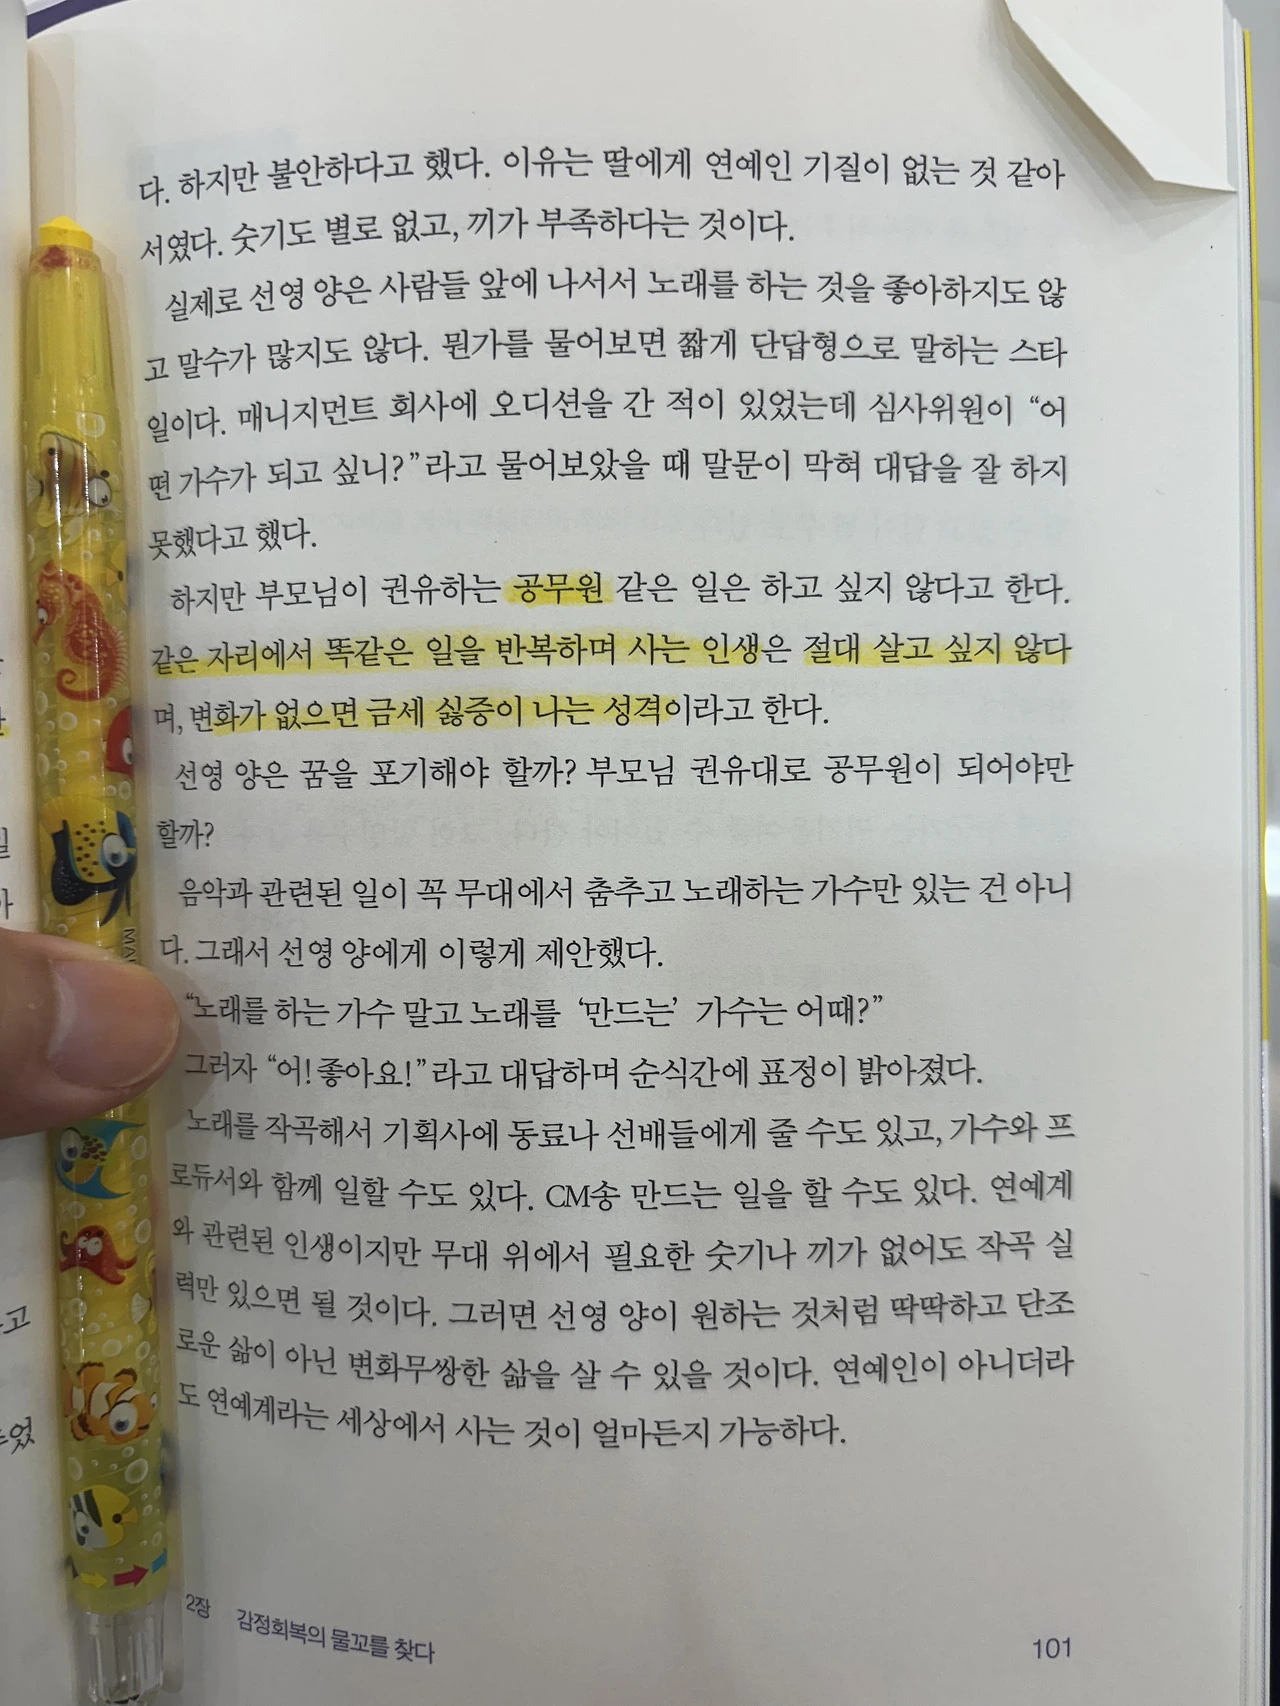 다. 하지만 불안하다고 했다. 이유는 딸에게 연예인 기질이 없는 것 같아
서였다. 숫기도 별로 없고, 끼가 부족하다는 것이다.
실제로 선영 양은 사람들 앞에 나서서 노래를 하는 것을 좋아하지도 않
고 말수가 많지도 않다. 뭔가를 물어보면 짧게 단답형으로 말하는 스타
일이다. 매니지먼트 회사에 오디션을 간 적이 있었는데 심사위원이 “어
떤 가수가 되고 싶니?”라고 물어보았을 때 말문이 막혀 대답을 잘 하지
못했다고 했다.
하지만 부모님이 권유하는 공무원 같은 일은 하고 싶지 않다고 한다.
같은 자리에서 똑같은 일을 반복하며 사는 인생은 절대 살고 싶지 않다
며, 변화가 없으면 금세 싫증이 나는 성격이라고 한다.
선영 양은 꿈을 포기해야 할까? 부모님 권유대로 공무원이 되어야만
할까?
음악과 관련된 일이 꼭 무대에서 춤추고 노래하는 가수만 있는 건 아니
다. 그래서 선영 양에게 이렇게 제안했다.
“노래를 하는 가수 말고 노래를 ‘만드는’ 가수는 어때?”
그러자 “어! 좋아요!”라고 대답하며 순식간에 표정이 밝아졌다.
노래를 작곡해서 기획사에 동료나 선배들에게 줄 수도 있고, 가수와 프
로듀서와 함께 일할 수도 있다. CM송 만드는 일을 할 수도 있다. 연예계
와 관련된 인생이지만 무대 위에서 필요한 숫기나 끼가 없어도 작곡 실
력만 있으면 될 것이다. 그러면 선영 양이 원하는 것처럼 딱딱하고 단조
로운 삶이 아닌 변화무쌍한 삶을 살 수 있을 것이다. 연예인이 아니더라
도 연예계라는 세상에서 사는 것이 얼마든지 가능하다.
2장 감정회복의 물꼬를 찾다
101